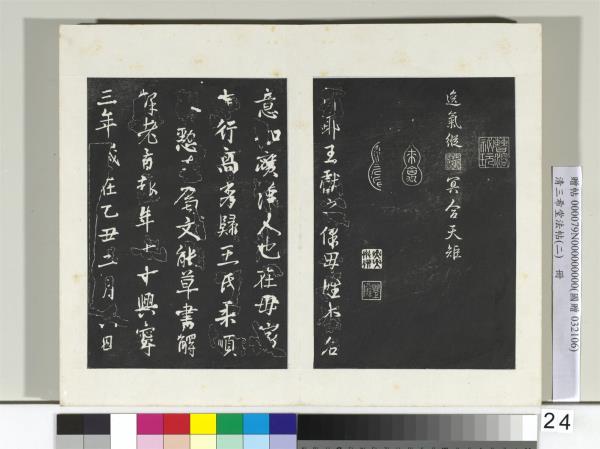 逸氣縱
冥合天
耶王獻之保母姓李名
意如廣漢人也在母家
志行高秀歸王氏柔順
懃善屬文能草書解
釋老旨趣年七十興寧
三年歲在乙丑二月六日
贈帖 000079N000000000(國贈 032106)
清三希堂法帖(二) 冊
24